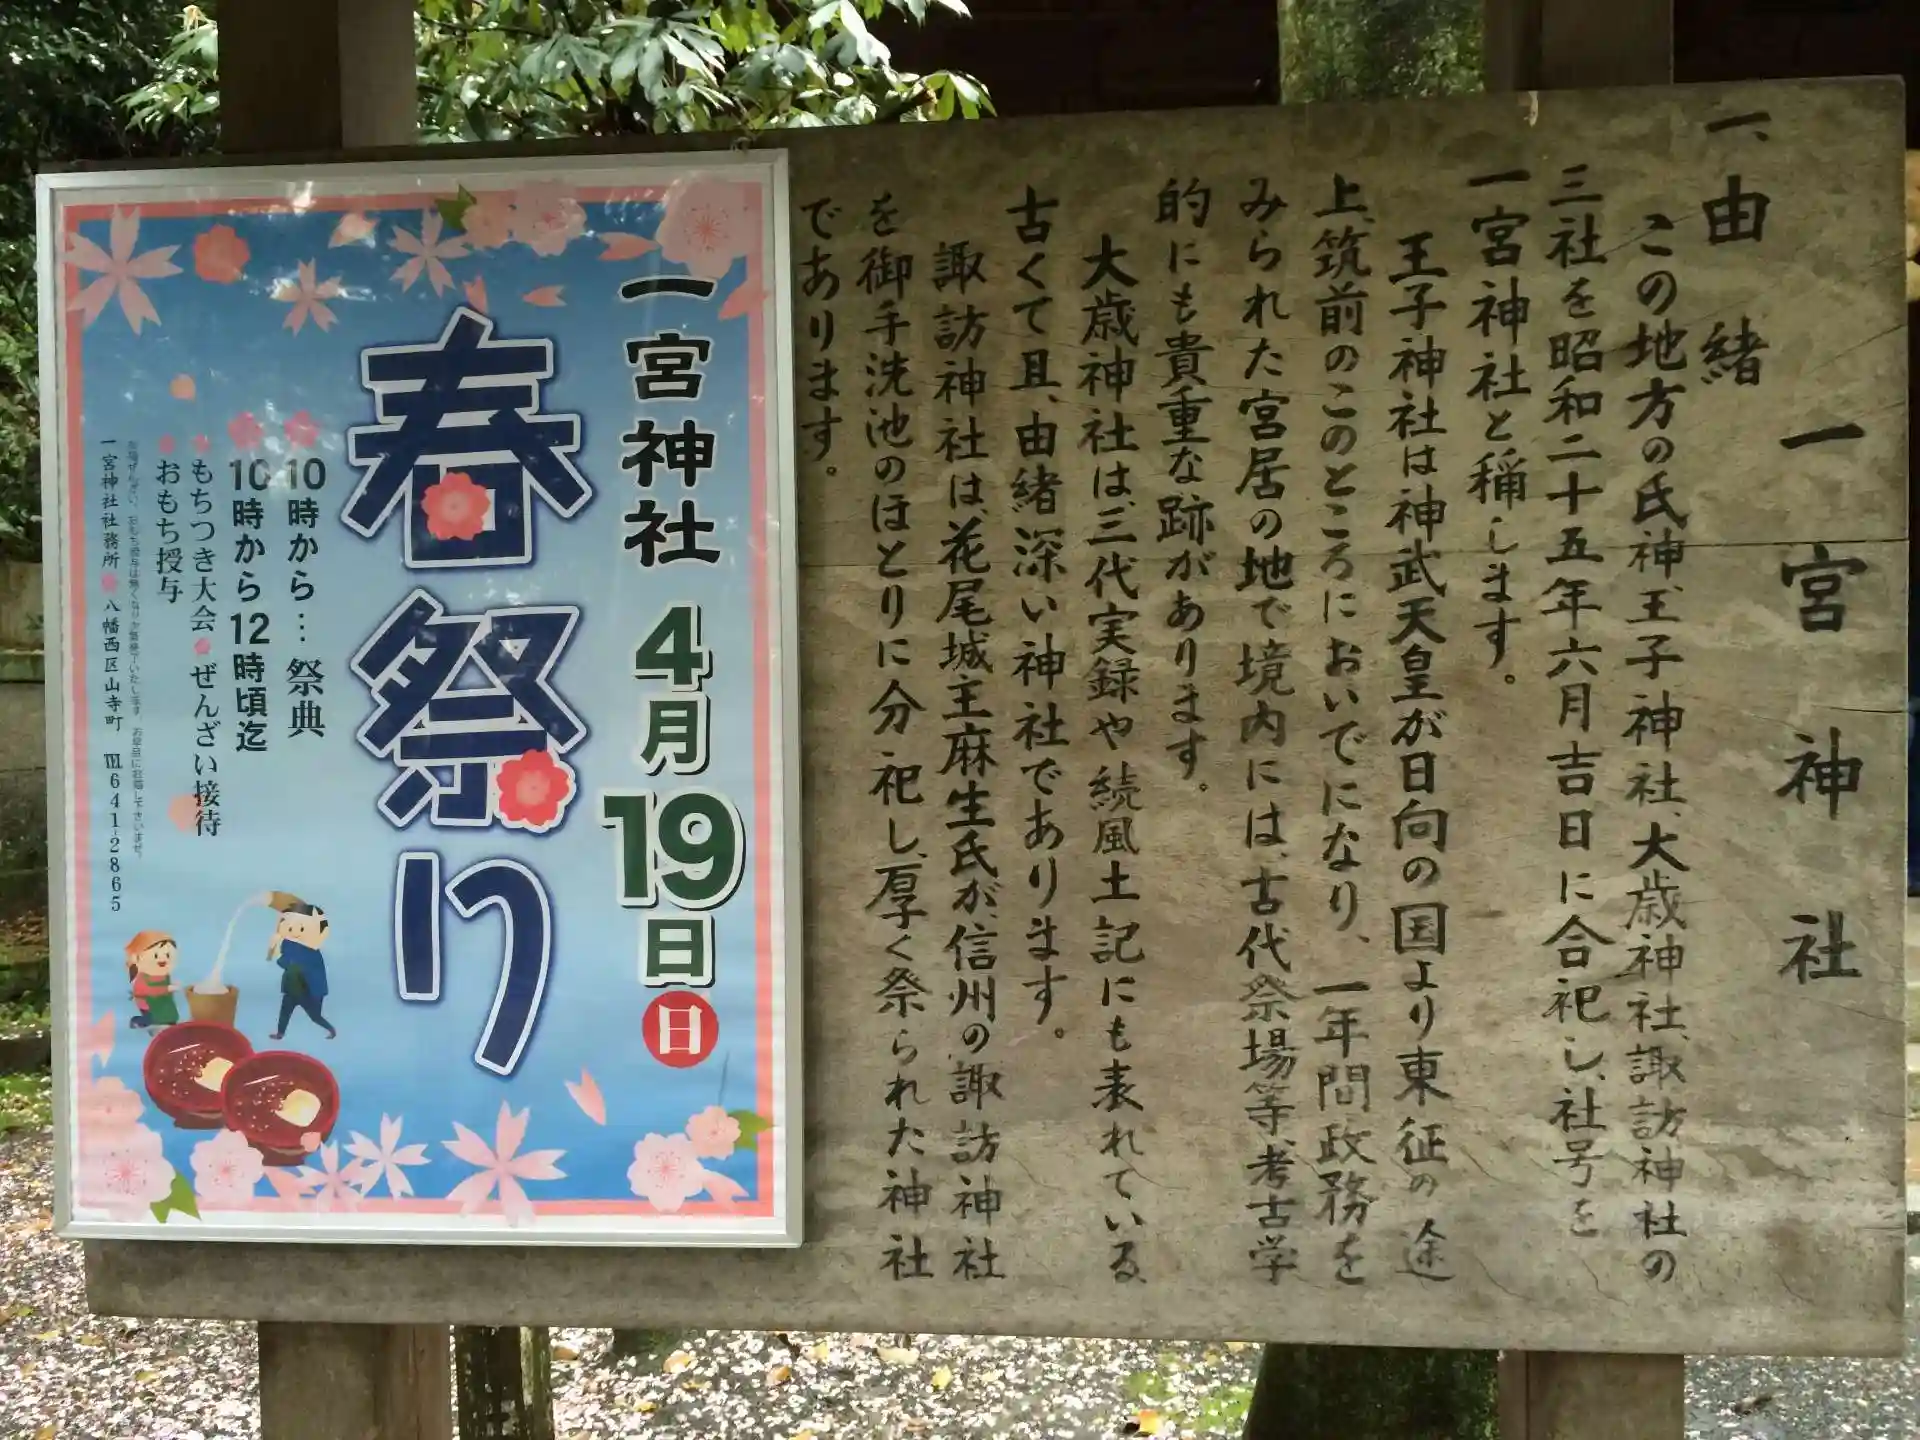 一宮神社
一、由緒
この地方の氏神、王子神社、大歳神社、諏訪神社の
三社を昭和二十五年六月吉日に合祀し、社号を
一宮神社と稱します。
王子神社は神武天皇が日向の国より東征の途
上、筑前のこのところにおいでになり、一年間政務を
みられた宮居の地で境内には、古代祭場等、考古学
的にも貴重な跡があります。
大歳神社は、三代実録や続風土記にも表れている
古くて且、由緒深い神社であります。
諏訪神社は、花尾城主麻生氏が、信州の諏訪神社
を御手洗池のほとりに分祀し、厚く祭られた神社
であります。
一宮神社 4月19日(日)
春祭り
10時から… 祭典
10時から12時頃迄
もちつき大会 ぜんざい接待
おもち授与
一宮神社社務所 八幡西区山寺町 ℡641-2865